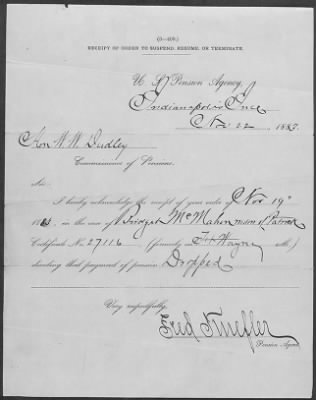 (3—408.)
RECEIPT OF ORDER TO SUSPEND, RESUME, OR TERMINATE.
U. S. Pension Agency,
Indianapolis Ind
Nov 22 1883.
Hon W. W. Dudley
Commissioner of Pensions.
Sir:
I hereby acknowledge the receipt of your order of Nov 19"
1883 in the case of Bridget McMahon Patrick
Certificate No. 27116 (formerly Ft Wayne )
directing that payment of pension Dropped
Very respectfully,
Fred Knefler
Pension Agent.